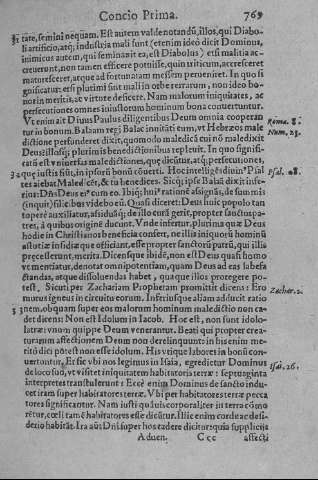 Concio Prima. 769
tate, semini nequam. Est autem valde notandũ, illos, qui Diabo-
li artificio, atq; industria mali sunt (etenim ideò dicit Dominus,
inimicus autem, qui seminavit ea, est Diabolus) etsi malitia ac-
creverunt, non tamen efficere potuisse, quin triticum, accresceret
maturesceret, atque ad fortunatam messem perveniret. In quo si
gnificatur: etsi plurimi sunt mali in orbe terrarum, non ideo bo-
nos in merita, ac virtute deficere. Nam malorum iniquitates, ac
persecutiones omnes iniustorum hominum bona convertuntur.
Vt enim ait Divus Paulus diligentibus Deum omnia cooperan Roma. 8.
tur in bonum. Balaam regi Balac invitāti eum, vt Hebræos male Num. 23.
dictione perfunderet dixit, quomodo maledicā cui nō maledixit
Deus: illosq; plurimis benedictionibus replevit. In quo signifi-
catū est vniversas maledictiones, quę dicũtur, atq; persecutiones,
3 quę iustis fiũt, in ipsorũ bonũ cōverti. Hoc intelligēs divinº Psal Psal. 108.
tes aiebat Maledicēt, & tu benedices.
(inquit) silicibus videbo eũ. Quasi diceret: Deus huic populo tan
topere auxiliatur, assiduāq; de illo curā gerit, propter sanctus pa-
tres, à quibus origine ducunt. Vnde infertur, plurima quæ Deus
hodie in Christianos beneficia confert, ne illis iniquorū hominũ
astutiæ insidiæ que officiant, esse propter sanctorũ putrũ, qui illis
præcesserunt, merita. Dicensque ibidē, non est Deus quasi homo
vt mentiatur, denotat omnipotentiam, quam Deus ad eas labefa
ctandas, atque dissolvendas habet, qua que illos protegere po-
test. Sicuti per Zachariam Prophetam promittit dicens: Ero Zachar. 2.
murus igneus in circuitu eorum. Inferiusque aliam adducit ratio
5 nem, ob quam super eos malorum hominum maledictio non ca-
det dicens: Non est Idolum in Iacob. Hoc est, non sunt idolo-
latræ: vnum quippe Deum venerantur. Beati qui propter crea-
turarum affectionem Deum non derelinquunt: in his enim me-
ritò dici potest non esse idolum. His vtique labores in bonũ con-
vertuntur. Et sic vbi nos legimus in Isaia, egredietur Dominus Isai. 26.
de loco suo, vt visitet iniquitatem habitatoris terræ: septuaginta
interpretes transtulerunt: Ecce enim Dominus de sancto indu-
cet iram super habitatores terræ. Vbi per habitatores terræ pecca
tores significantur. Nam iusti quāvis corporaliter in terra cōmo
rētur, cœli tamē habitatores esse dicũtur. Illic enim cordie ac desi-
derio habitāt. Ira aūt Dñi super hos cadere dicitur: quia supplicijs
Aduen. Ccc affecti